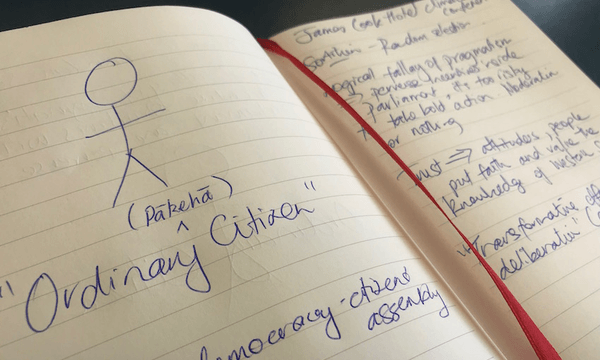 (Pākehā)
^
"Ordinary Citizen"
democracy - citizens
assembly
James Cook Hotel climate
conference
Sortition - Random selection
Logical fallacy of pragmatism
⇒ perverse incentives inside
parliament, it's too risky
to take bold action.
or nothing
Trust ⇒ attitudes, people
put faith and value the
knowledge of western
"Transformative
deliberation" (